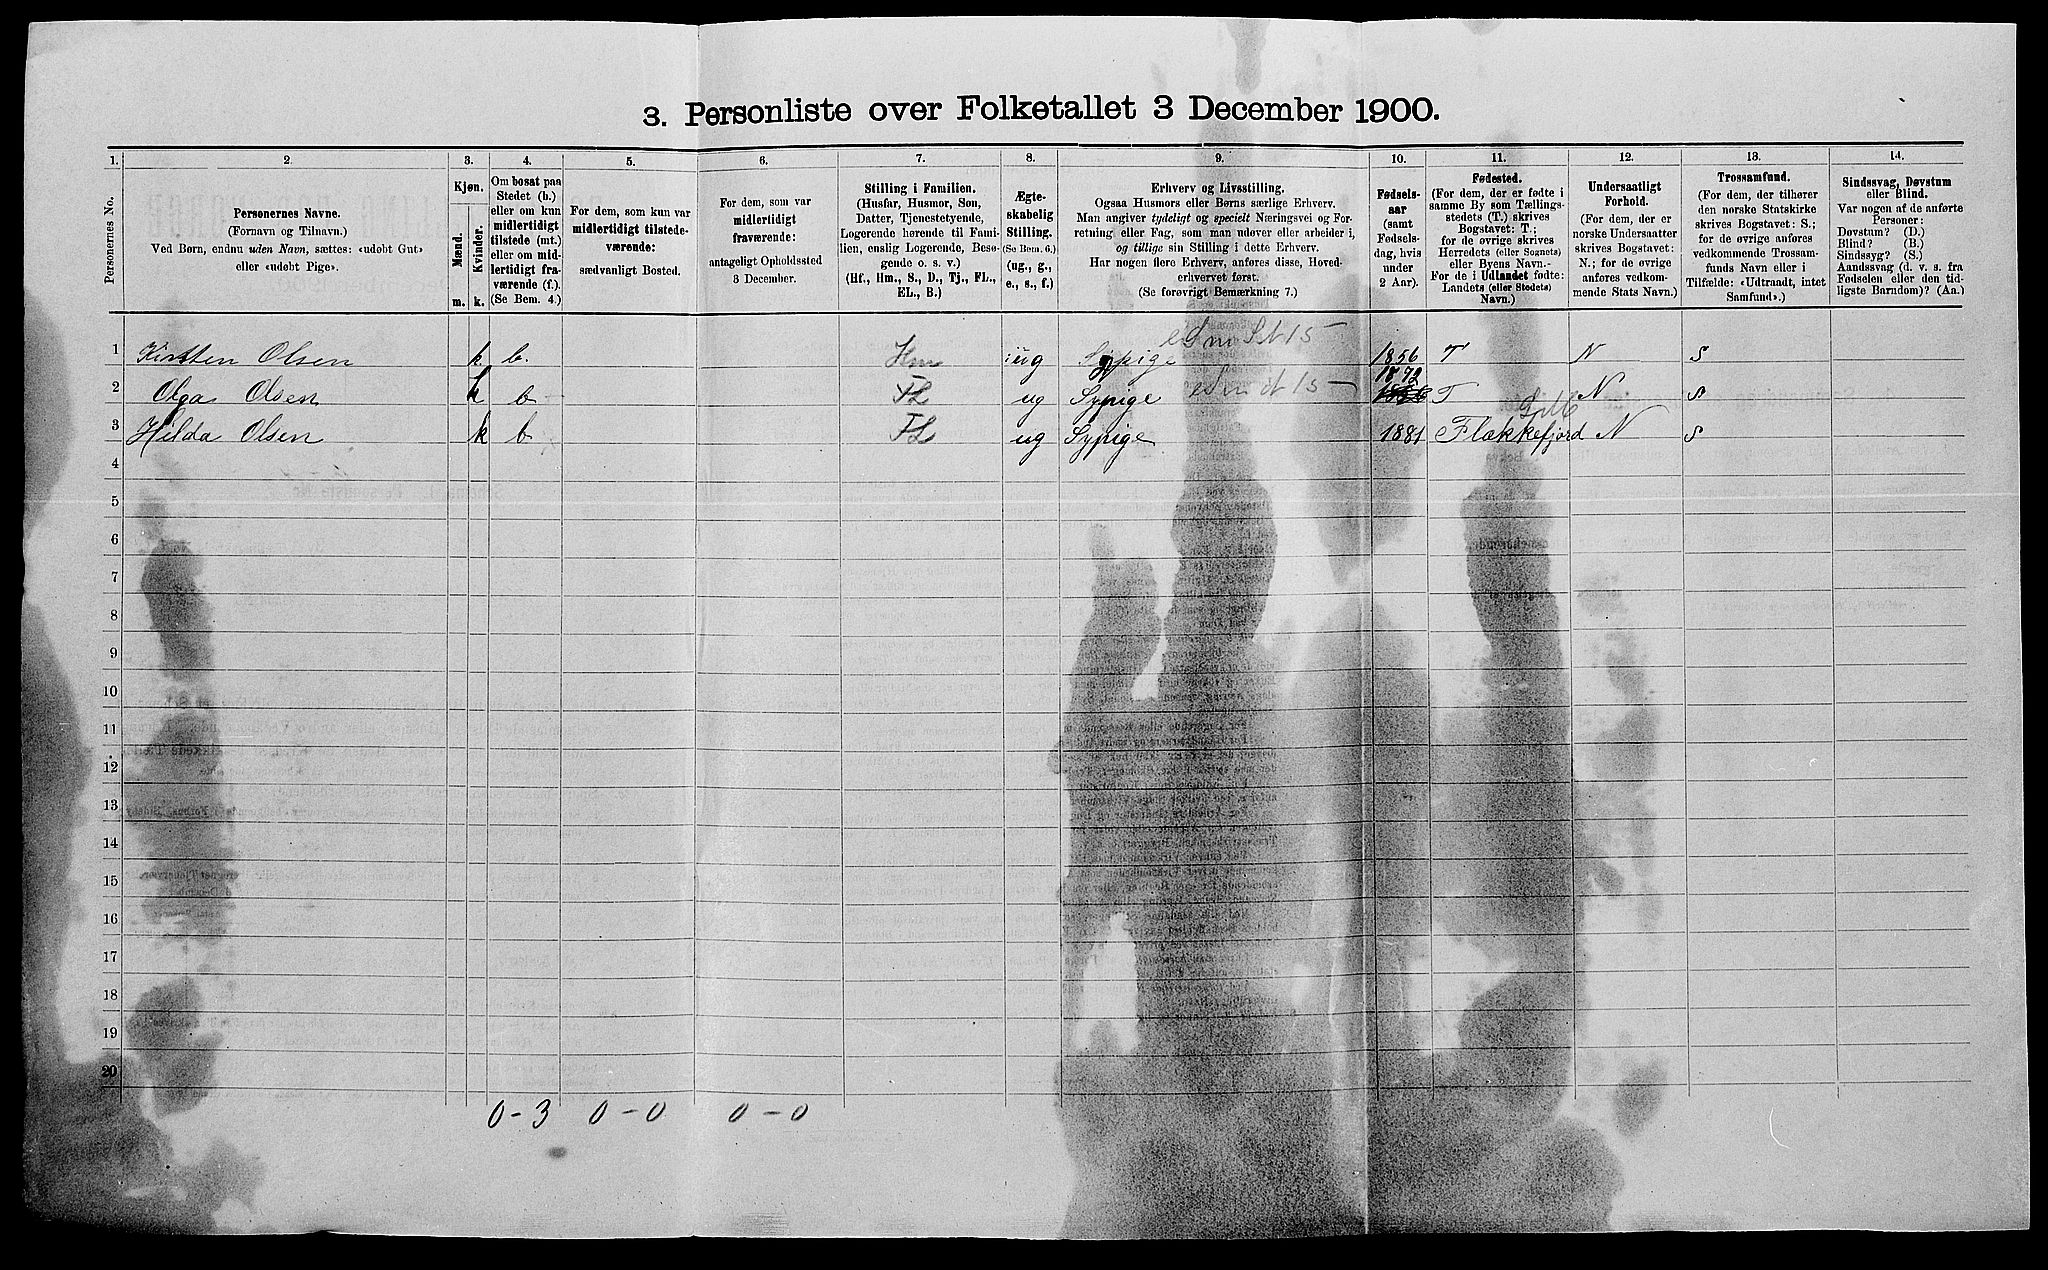 3. Personliste over Folketallet 3 December 1900.
1. 2. 3. 4. 5. 6. 7. 8. 9. 10. 11. 12. 13. 14.
Personernes No.
Personernes Navne.
(Fornavn og Tilnavn.)
Ved Børn, endnu uden Navn, sættes: «udøbt Gut»
eller «udøbt Pige».
Kjøn.
Mænd.
Kvinder.
m. k.
Om bosat paa
Stedet (b.)
eller om kun
midlertidigt
tilstede (mt.)
eller om mid-
lertidigt fra-
værende (f.)
(Se Bem. 4.)
For dem, som kun var
midlertidigt tilstede-
værende:
sædvanligt Bosted.
For dem, som var
midlertidigt
fraværende:
antageligt Opholdssted
3 December.
Stilling i Familien.
(Husfar, Husmor, Søn,
Datter, Tjenestetyende,
Logerende hørende til Fami-
lien, enslig Logerende, Besø-
gende o. s. v.)
(Hf., Hm., S., D., Tj., FL.,
EL., B.)
Ægte-
skabelig
Stilling.
(Se Bem. 6.)
(ug., g.,
e., s., f.)
Erhverv og Livsstilling.
Ogsaa Husmors eller Børns særlige Erhverv.
Man angiver tydeligt og specielt Næringsvei og For-
retning eller Fag, som man udøver eller arbeider i,
og tillige sin Stilling i dette Erhverv.
Har nogen flere Erhverv, anføres disse, Hoved-
erhvervet først.
(Se forøvrigt Bemærkning 7.)
Fødsels-
aar
(samt
Fødsels-
dag, hvis
under
2 Aar).
Fødested.
(For dem, der er fødte i
samme By som Tællings-
stedets (T.) skrives
Bogstavet: T.;
for de øvrige skrives
Herredets (eller Sognets)
eller Byens Navn.-
For de i Udlandet fødte:
Landets (eller Stedets)
Navn.)
Undersaatligt
Forhold.
(For dem, der er
norske Undersaatter
skrives Bogstavet:
N.; for de øvrige
anføres vedkom-
mende Stats Navn.)
Trossamfund.
(For dem, der tilhører
den norske Statskirke
skrives Bogstavet: S.;
for de øvrige anføres
vedkommende Trossam-
funds Navn eller i
Tilfælde: «Udtraadt, intet
Samfund».)
Sindssvag, Døvstum
eller Blind.
Var nogen af de anførte
Personer:
Døvstum? (D.)
Blind? (B.)
Sindssyg? (S.)
Aandssvag (d. v. s. fra
Fødselen eller den tid-
ligste Barndom)? (Aa.)
1 Kirsten Olsen k b. Hm ug Sypige 1856 T N S
2 Olga Olsen k b FL ug Sypige 1872 T N S
3 Hilda Olsen k b FL ug Sypige 1881 Flækkefjord N S
4
5
6
7
8
9
10
11
12
13
14
15
16
17
18
19
20
0 - 3 0 - 0 0 - 0